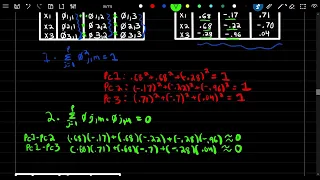 X1 | Ø1,1 | Ø1,2 | Ø1,3
X2 | Ø2,1 | Ø2,2 | Ø2,3
X3 | Ø3,1 | Ø3,2 | Ø3,3
X1 | .68 | -.17 | .71
X2 | .68 | -.22 | -.70
X3 | -.28 | -.96 | .04
1. Σ j=1 P Ø² j,m = 1
PC1: .68² + .68² + (-.28)² = 1
PC2: (-.17)² + (-.22)² + (-.96)² = 1
PC3: (.71)² + (-.7)² + (.04)² = 1
2. Σ j=1 P Øj,m · Øj,M = 0
PC1-PC2 (.68)(-.17) + (.68)(-.22) + (-.28)(-.96) ≈ 0
PC1-PC3 (.68)(.71) + (.68)(-.7) + (-.28)(.04) ≈ 0